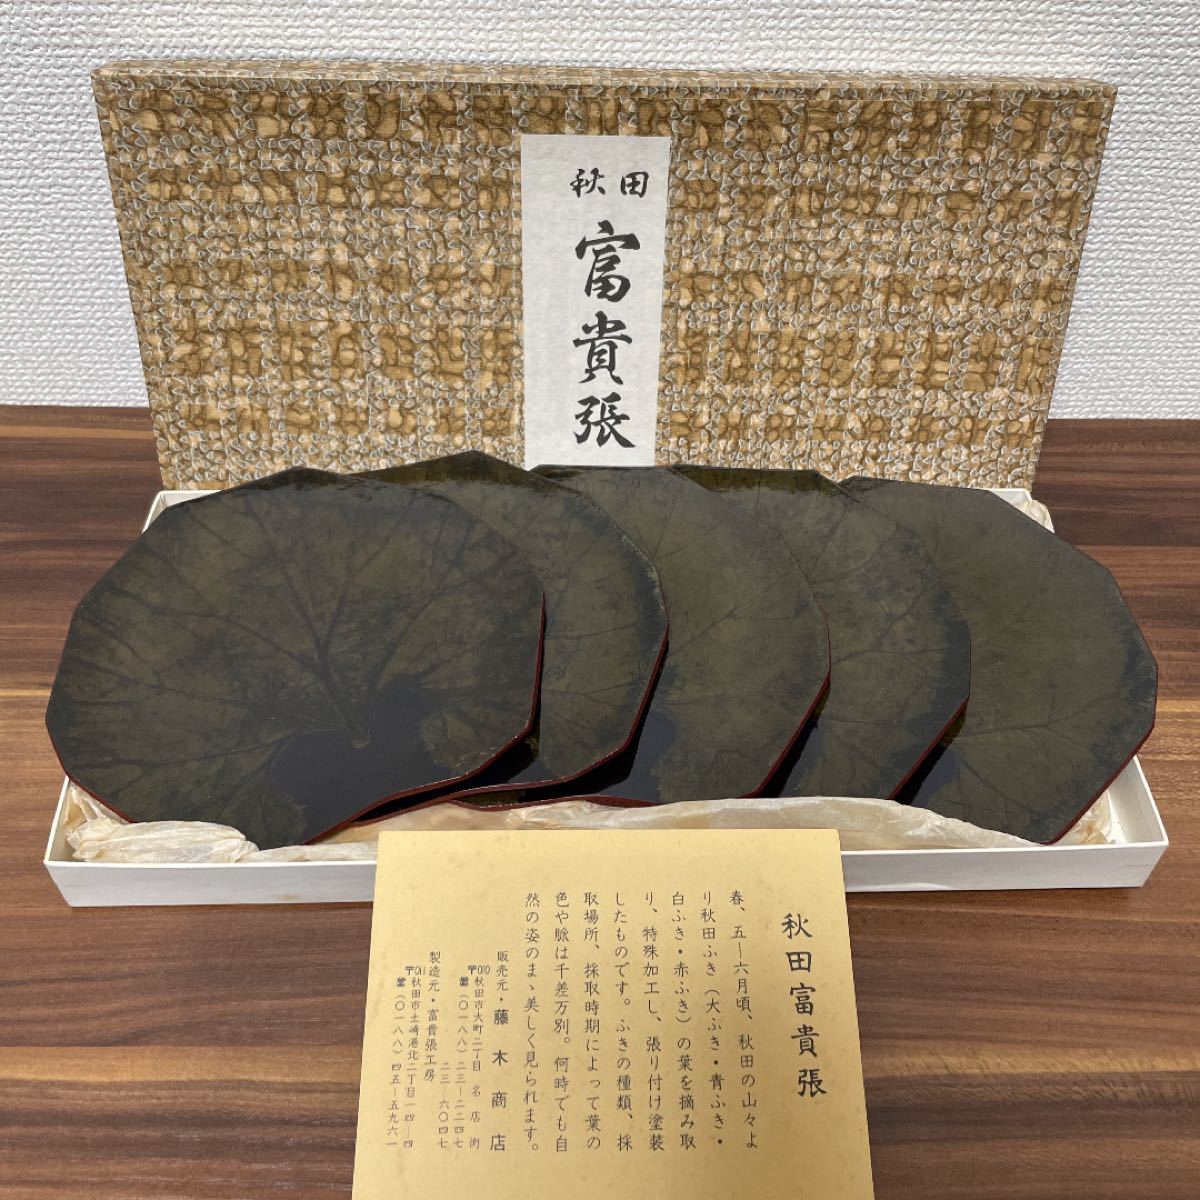 秋田
富貴張
秋田富貴張
春、五〜六月頃、秋田の山々よ
り秋田ふき（大ぶき・青ふき・
白ふき・赤ふき）の葉を摘み取
り、特殊加工し、張り付け塗装
したものです。ふきの種類、採
取場所、採取時期によって葉の
色や脈は千差万別。何時でも自
然の姿のまゝ美しく見られます。
販売元・藤木商店
〒010 秋田市大町二丁目 名店街
☎（〇一八八）二三－二二四七
二三－六〇四七
製造元・富貴張工房
〒011 秋田市土崎港北二丁目一四－四
☎（〇一八八）四五－五九六一